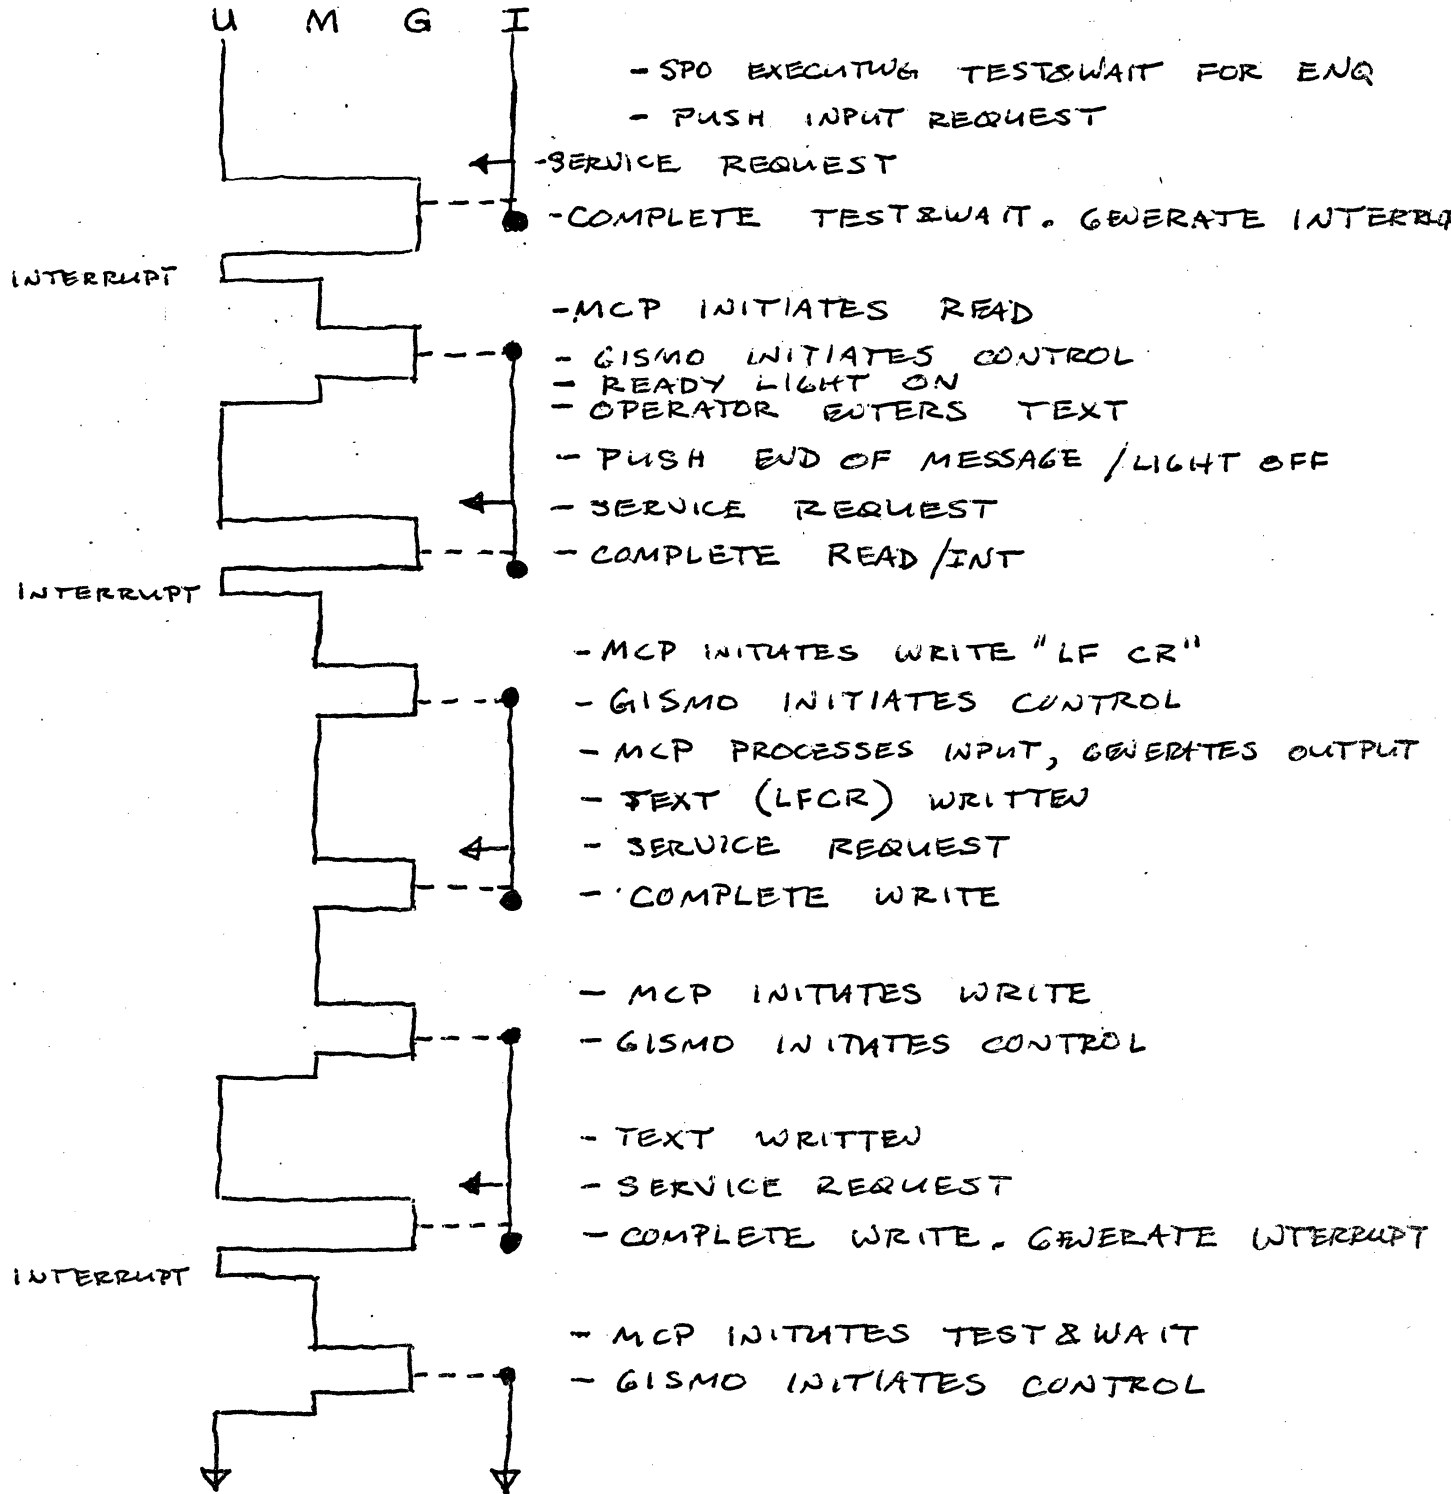 U M G I
- SPO EXECUTING TEST&WAIT FOR ENQ
- PUSH INPUT REQUEST
- SERVICE REQUEST
- COMPLETE TEST&WAIT. GENERATE INTERRUP
INTERRUPT
- MCP INITIATES READ
- GISMO INITIATES CONTROL
- READY LIGHT ON
- OPERATOR ENTERS TEXT
- PUSH END OF MESSAGE / LIGHT OFF
- SERVICE REQUEST
- COMPLETE READ/INT
INTERRUPT
- MCP INITIATES WRITE "LF CR"
- GISMO INITIATES CONTROL
- MCP PROCESSES INPUT, GENERATES OUTPUT
- TEXT (LFCR) WRITTEN
- SERVICE REQUEST
- COMPLETE WRITE
- MCP INITIATES WRITE
- GISMO INITIATES CONTROL
- TEXT WRITTEN
- SERVICE REQUEST
- COMPLETE WRITE. GENERATE INTERRUPT
INTERRUPT
- MCP INITIATES TEST & WAIT
- GISMO INITIATES CONTROL